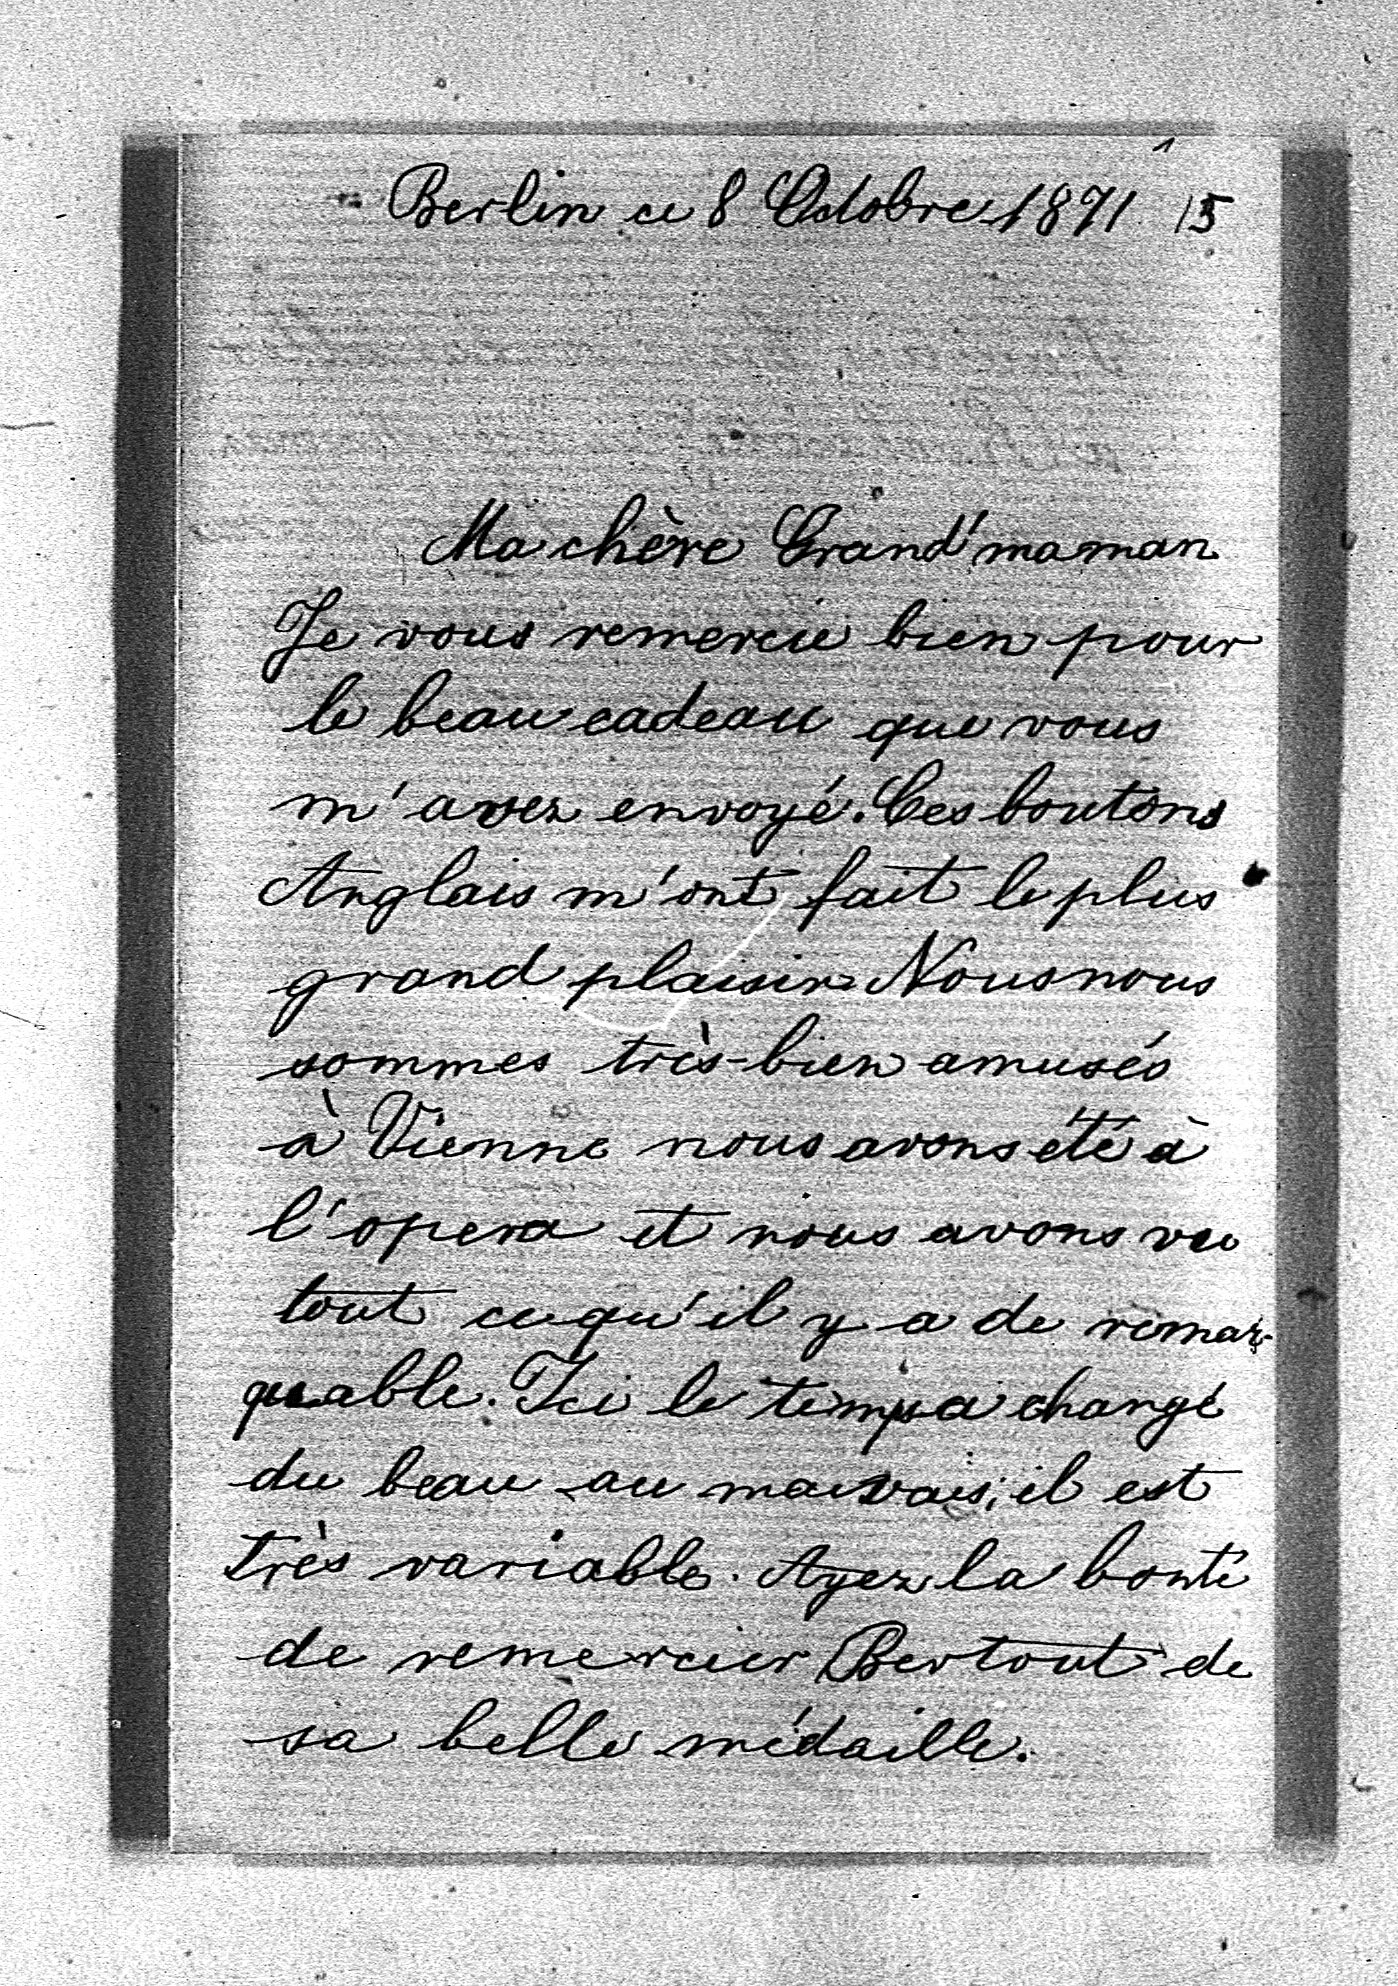 Berlin ce 8 Octobre 1871 15
Ma chère Grand'maman
Je vous remercie bien pour
le beau cadeau que vous
m'avez envoyé. Ces boutons
Anglais m'ont fait le plus
grand plaisir. Nous nous
sommes très-bien amusés
à Vienne nous avons été à
l'opera et nous avons vu
tout ce qu'il y a de remar-
quable. Ici le temps a changé
du beau au mauvais; il est
très variable. Ayez la bonté
de remercier Bertout de
sa belle médaille.